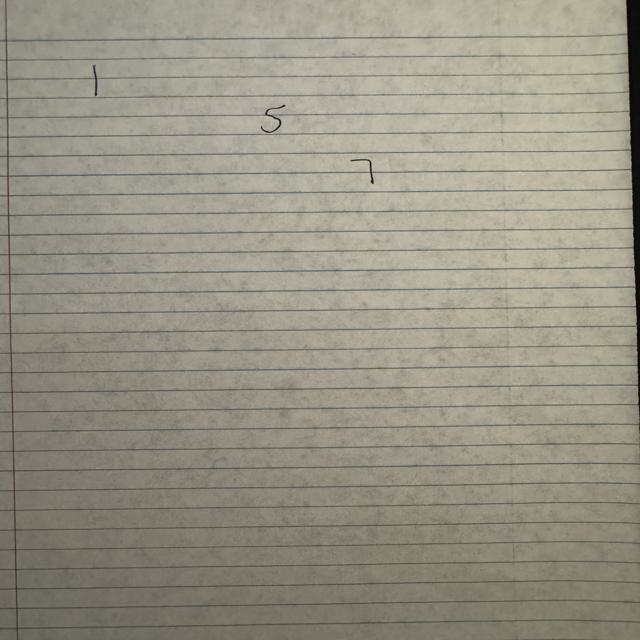 1
5
7